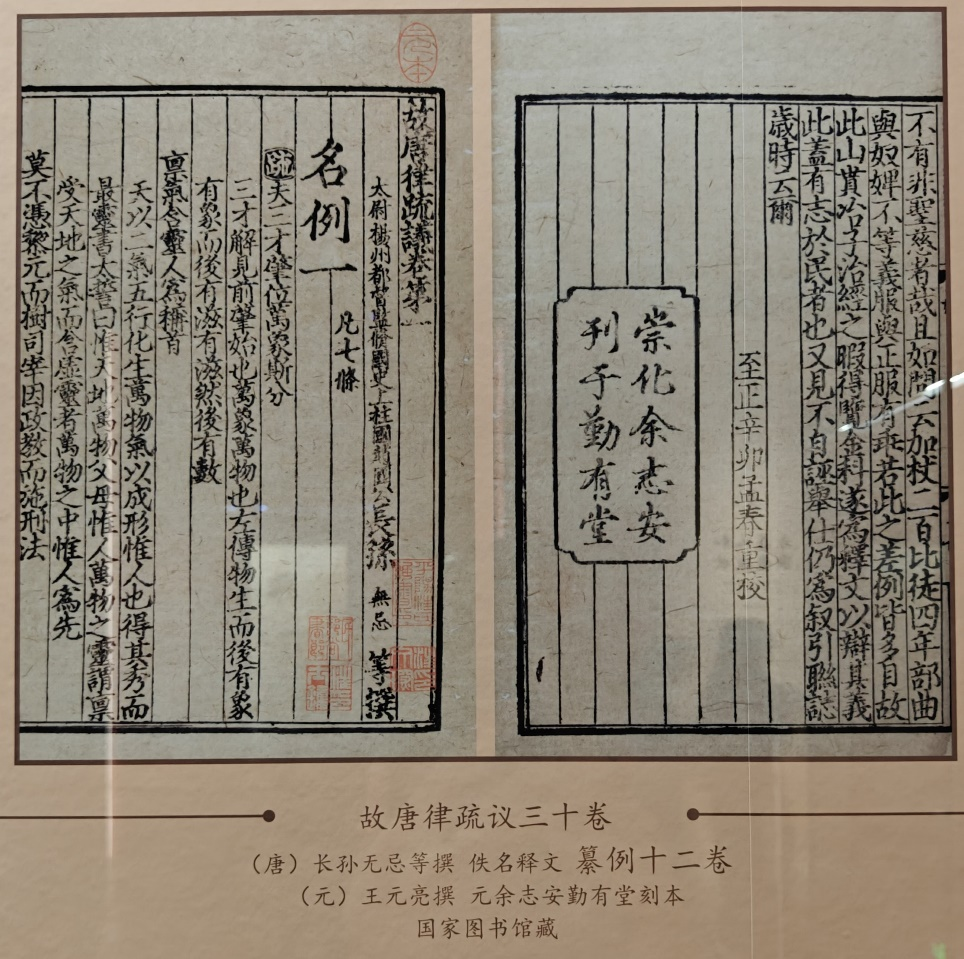 不有非聖慈者哉且如問云加杖二百比徒四年部曲
與奴婢不等義服與正服有乖若此之差例皆多目故
此山貰冶子治經之暇得覽金科遂爲釋文以辯其義
此蓋有志於民者也又見不自誣舉仕仍爲叙引聯誌
歲時云爾
至正辛卯孟春重校
崇化余志安
刊于勤有堂
元本
故唐律疏議卷第一
太尉揚州都督監修國史上柱國趙國公長孫無忌等撰
名例一 凡七條
疏 夫三才肇位萬象斯分
三才解見前肇始也萬象萬物也左傳物生而後有象
有象而後有滋有滋然後有數
稟氣含靈人爲稱首
天以二氣五行化生萬物氣以成形惟人也得其秀而
最靈書太誓曰惟天地萬物父母惟人萬物之靈謂稟
受天地之氣而含虛靈者萬物之中惟人爲先
莫不憑黎元而樹司宰因政教而施刑法
故唐律疏议三十卷
（唐）长孙无忌等撰 佚名释文 纂例十二卷
（元）王元亮撰 元余志安勤有堂刻本
国家图书馆藏